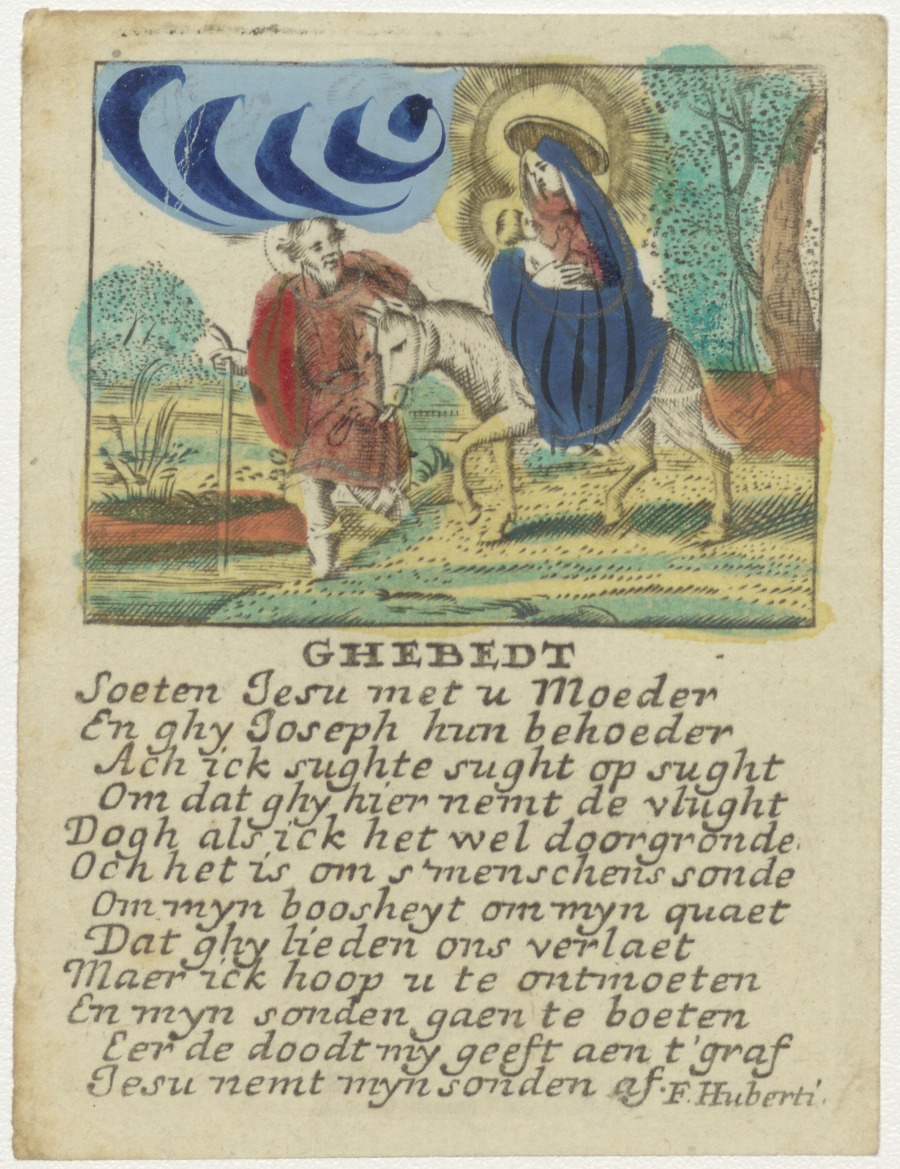 GHEBEDT
Soeten Iesu met u Moeder
En ghy Ioseph hun behoeder
Ach ick sughte sught op sught
Om dat ghy hier nemt de vlught
Dogh als ick het wel doorgronde
Och het is om s'menschens sonde
Om myn boosheyt om myn quaet
Dat ghy lieden ons verlaet
Maer ick hoop u te ontmoeten
En myn sonden gaen te boeten
Eer de doodt my geeft aen t'graf
Iesu nemt myn sonden af.
F. Huberti.